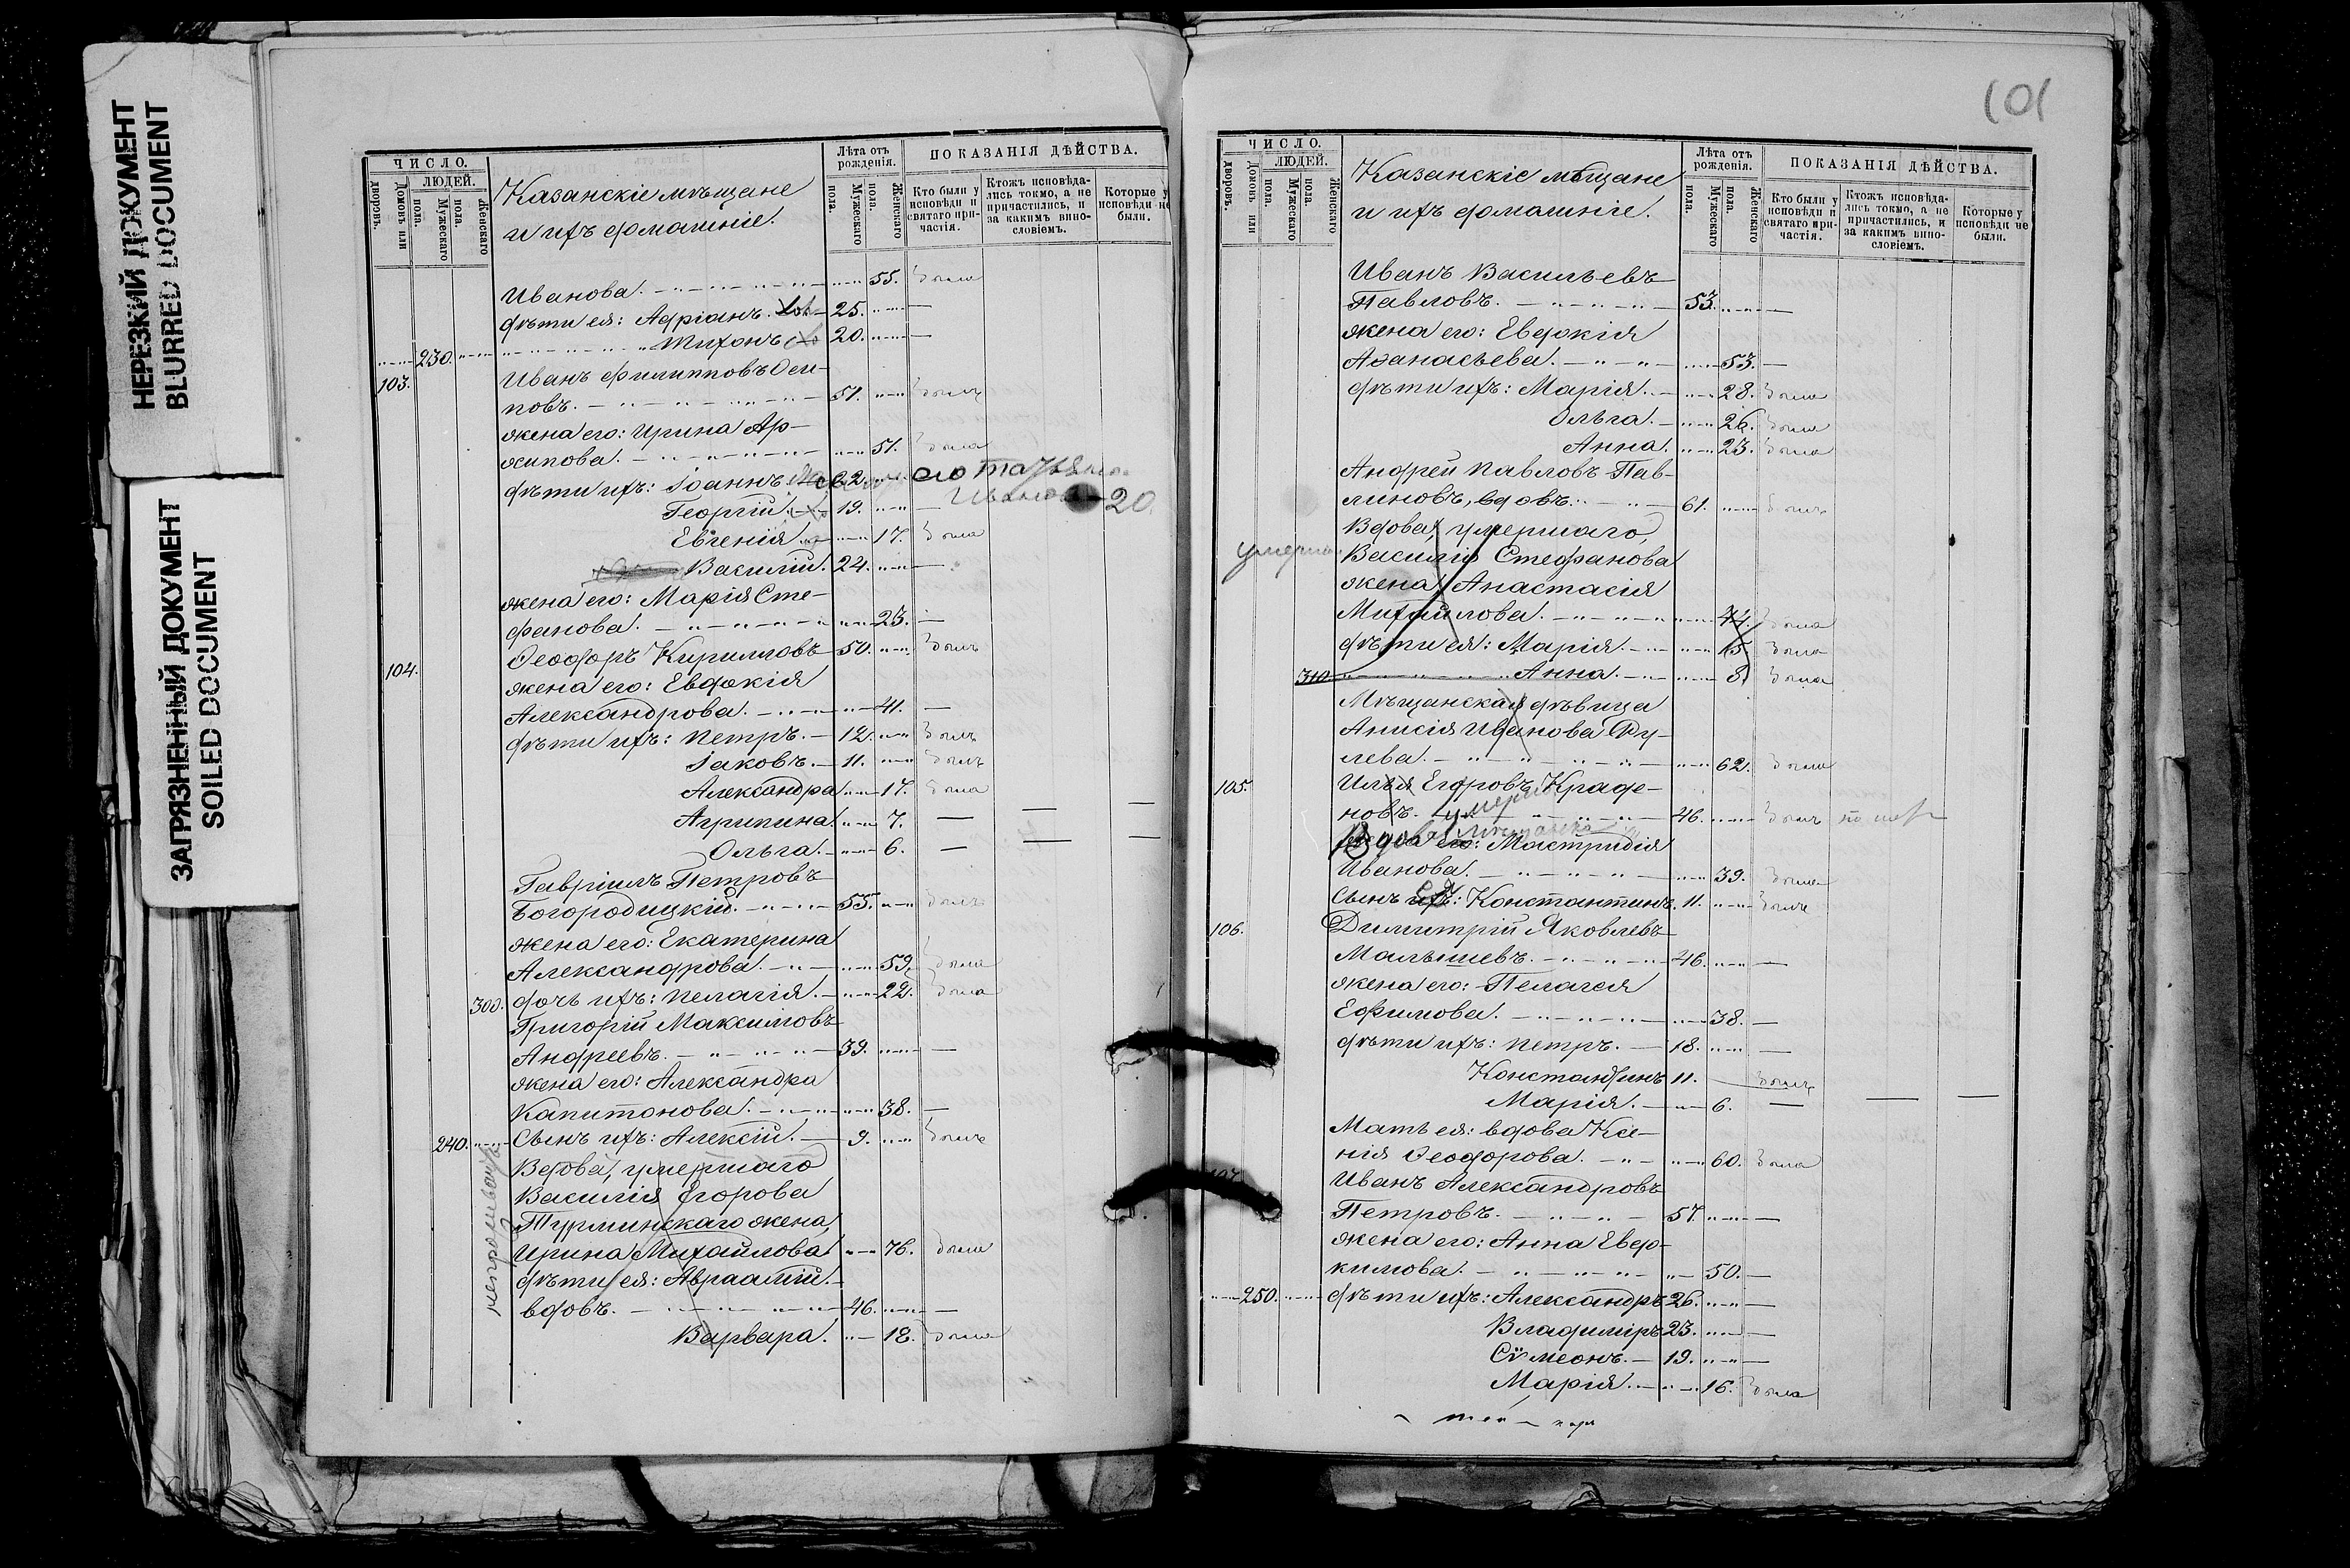 НЕРЕЗКИЙ ДОКУМЕНТ
BLURRED DOCUMENT
ЗАГРЯЗНЕННЫЙ ДОКУМЕНТ
SOILED DOCUMENT
ЧИСЛО.
ЛЮДЕЙ.
Домовъ или дворовъ.
Мужескаго пола.
Женскаго пола.
Казанскіе мѣщане
и ихъ домашніе.
Лѣта отъ рожденія.
Мужескаго пола.
Женскаго пола.
ПОКАЗАНІЯ ДѢЙСТВА.
Кто были у исповѣди и святаго причастія.
Ктожъ исповѣдались токмо, а не причастились, и за какимъ винословіемъ.
Которые у исповѣди не были.
Иванова. 55. была
дѣти ея: Адріанъ. 25.
230. Тихонъ 20.
103. Иванъ Филипповъ Оси-
повъ. 51. былъ
жена его: Ирина Ар-
хипова. 51. была
дѣти ихъ: Іоаннъ 22.
Иванова 20.
Георгій. 19.
Евгенія. 17. была
Василій. 24.
жена его: Марія Сте-
фанова. 23.
104. Ѳеодоръ Кирилловъ 50. былъ
жена его: Евдокія
Александрова. 41.
дѣти ихъ: Петръ. 12. былъ
Іаковъ. 11. былъ
Александра 17. была
Агрипина. 7.
Ольга. 6.
Гавріилъ Петровъ
Богородицкій. 55. былъ
жена его: Екатерина
Александрова. 59. была
300. дочь ихъ: Пелагія. 22. была
Григорій Максимовъ
Андреевъ. 39.
жена его: Александра
Капитонова. 38.
240. Сынъ ихъ: Алексій. 9. былъ
Вдова, умершаго
Василія Егорова
Турминскаго жена,
Ирина Михайлова 76. была
дѣти ея: Авраамій.
вдовъ. 46.
Варвара. 18. была
101
ЧИСЛО.
ЛЮДЕЙ.
Домовъ или дворовъ.
Мужескаго пола.
Женскаго пола.
Казанскіе мѣщане
и ихъ домашніе.
Лѣта отъ рожденія.
Мужескаго пола.
Женскаго пола.
ПОКАЗАНІЯ ДѢЙСТВА.
Кто были у исповѣди и святаго причастія.
Ктожъ исповѣдались токмо, а не причастились, и за какимъ винословіемъ.
Которые у исповѣди не были.
Иванъ Васильевъ
Павловъ. 53.
жена его: Евдокія
Аѳанасьева. 53.
дѣти ихъ: Марія. 28. была
Ольга. 26. была
Анна. 23. была
Андрей Павловъ Пав-
линовъ, вдовъ. 61. былъ
Вдова, умершаго
Василія Стефанова
жена, Анастасія
Михайлова. 44. была
дѣти ея: Марія. 15 была
310 Анна. 8. была
Мѣщанская дѣвица
Анисія Иванова Ру-
лева. 62. была
105. Илья Егоровъ Краде-
новъ. умеръ 46. былъ
Вдова мѣщанка Мастридія
Иванова. 39. была
Сынъ ея: Константинъ. 11. былъ
106. Димитрій Яковлевъ
Малышевъ. 46.
жена его: Пелагея
Ефимова. 38.
дѣти ихъ: Петръ. 18.
Константинъ 11. былъ
Марія. 6.
Мать ея: вдова Ксе-
нія Ѳеодорова. 60. была
107. Иванъ Александровъ
Петровъ. 57.
жена его: Анна Евдо-
кимова. 50.
250. дѣти ихъ: Александръ 26.
Владиміръ 23.
Сѵмеонъ. 19.
Марія. 16. была